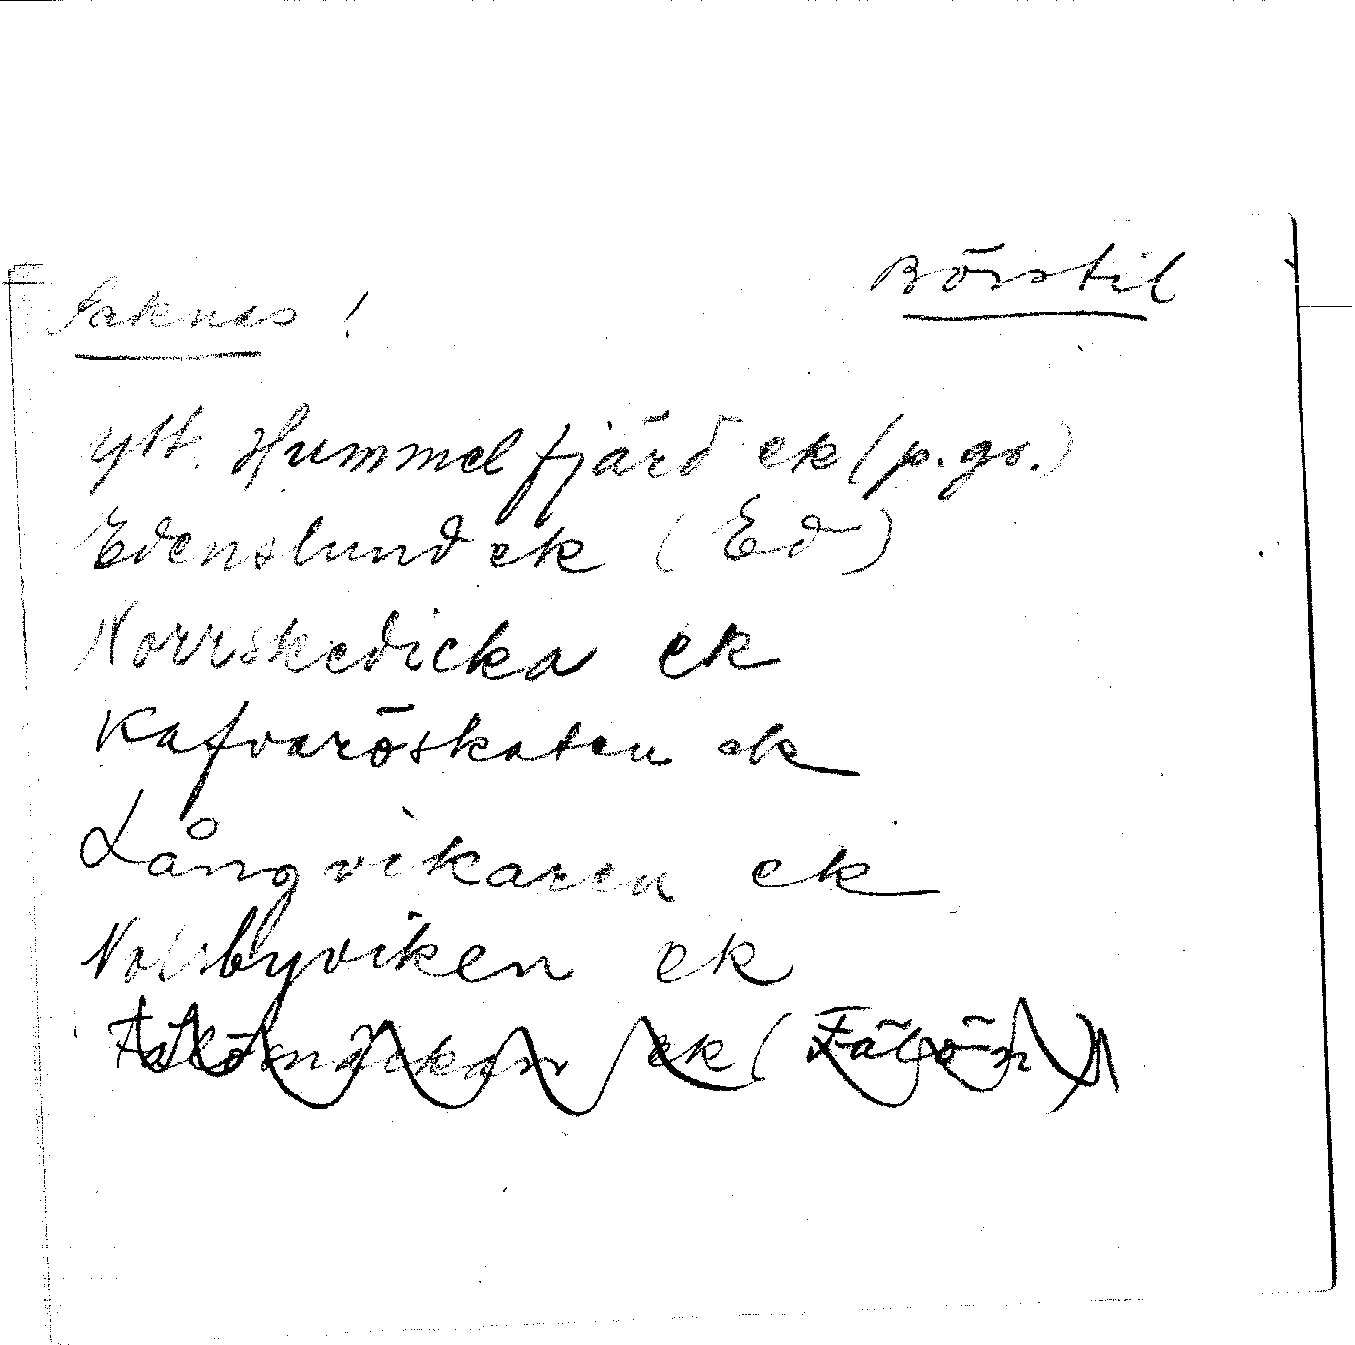 Saknas!
Börstil
Ytt. Hummelfjärd ek (p.gr.)
Edenslund ek (Ed)
Norrskedicka ek
Kafvaröskaten ek
Långvikaren ek
Norrbyviken ek
ek (Fälön)